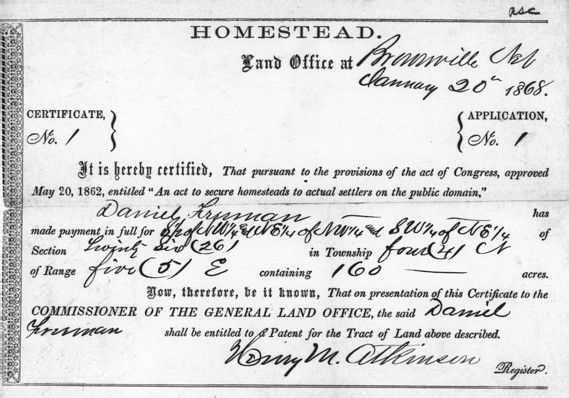 HOMESTEAD.
Land Office at Brownville Neb
January 20th 1868.
CERTIFICATE, No. 1 }
{ APPLICATION, No. 1
It is hereby certified, That pursuant to the provisions of the act of Congress, approved
May 20, 1862, entitled "An act to secure homesteads to actual settlers on the public domain,"
Daniel Freeman has
made payment in full for S½ of NW¼ & NE¼ of NW¼ and SW¼ of NE¼ of
Section Twenty Six (26) in Township four (4) N
of Range five (5) E containing 160 acres.
Now, therefore, be it known, That on presentation of this Certificate to the
COMMISSIONER OF THE GENERAL LAND OFFICE, the said Daniel
Freeman shall be entitled to a Patent for the Tract of Land above described.
Henry M. Atkinson
Register.